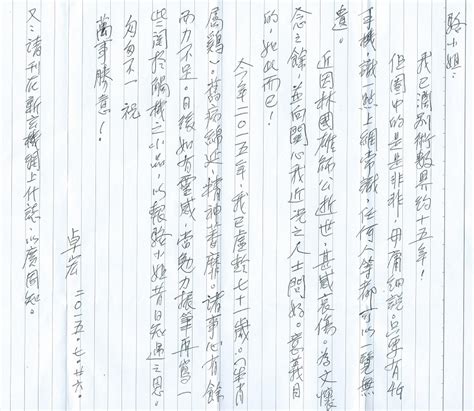 駱小姐:
我已濶別術數界約十五年!
但圈中的是是非非,毋庸細說。只要有智
手機,識一點上網常識,任何人等都可以一覽無
遺。
近因林國雄師公逝世,甚感哀傷。為文懷
念之餘,並向關心我近況之人士問好。意義目
的,如此而已!
今年二〇一五年,我已虛齡七十一歲。(生肖
屬鷄)。舊病綿延,精神萎靡。諸事心有餘
而力不足。日後如有靈感,當勉力振筆再寫一
些關於觸機之小品,以報駱小姐昔日知遇之恩。
匆匆不一祝
萬事勝意!
卓宏 二〇一五.七.廿六.
又:請刊於新玄機網上什誌,以廣周知。